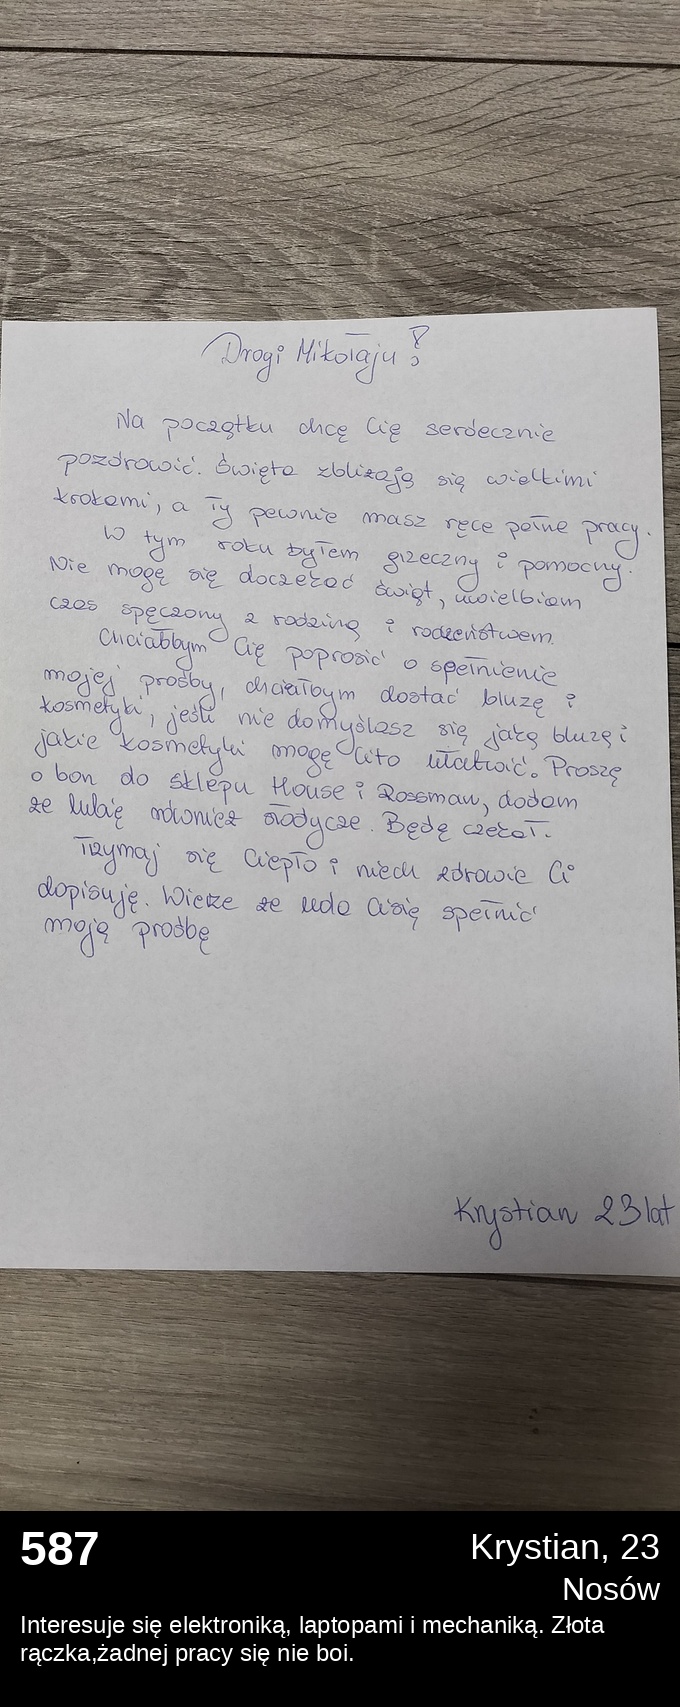 Drogi Mikołaju!
Na początku chcę Cię serdecznie
pozdrowić. Święta zbliżają się wielkimi
krokami, a Ty pewnie masz ręce pełne pracy.
W tym roku byłem grzeczny i pomocny.
Nie mogę się doczekać świąt, uwielbiam
czas spęczony z rodziną i rodzeństwem.
Chciałbym Cię poprosić o spełnienie
mojej prośby, chciałbym dostać bluzę i
kosmetyki, jeśli nie domyślasz się jaką bluzę i
jakie kosmetyki mogę Ci to ułatwić. Proszę
o bon do sklepu House i Rossman, dodam
że lubię również słodycze. Będę czekał.
Trzymaj się Ciepło i niech zdrowie Ci
dopisuję. Wierze że uda Ci się spełnić
moją prośbę
Krystian 23 lat
587
Krystian, 23
Nosów
Interesuje się elektroniką, laptopami i mechaniką. Złota
rączka,żadnej pracy się nie boi.